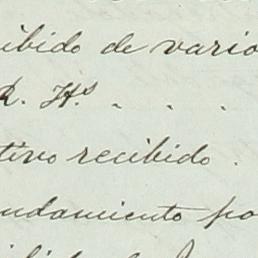 ibido de vario
R. Hs. . . .
tivo recibido .
ndamiento po